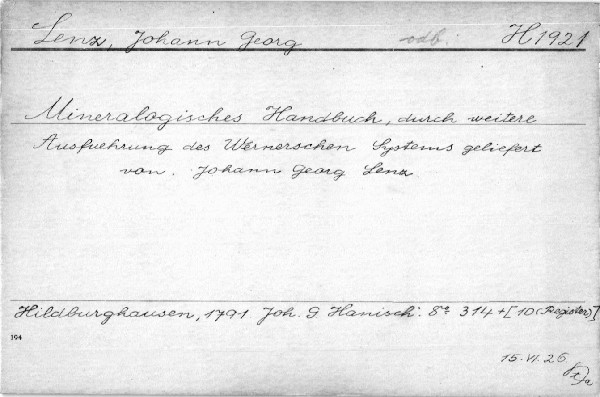 Lenz, Johann Georg odb. H 1921
Mineralogisches Handbuch, durch weitere
Ausfuehrung des Wernerschen Systems geliefert
von. Johann Georg Lenz
Hildburghausen, 1791 Joh. G. Hanisch. 8° 314 + [10 (Register)]
194
15. VI. 26